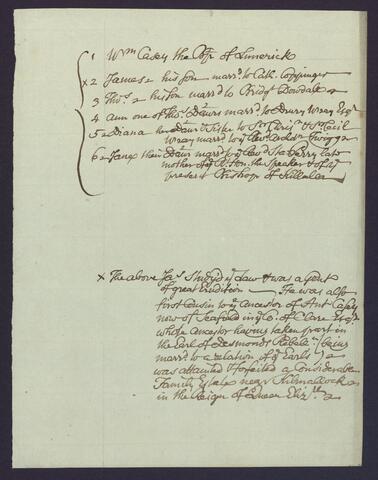 1 Wm Casey the Bp of Limerick
x2 James his son marrd to Cath. Coppinger
3 Thos his son marrd to Bridgt Dowdale
4 Ann one of Thos's Daurs marrd to Drury Wray Esqr
5 Diana her Daur & Sister to Sr Chrisr & Sr Cecil
Wray marrd to ye Revd Archdn Twigge
6 Jane their Daur marrd to ye Revd Sta Perry late
mother of ye Rt Hon the Speaker & of ye
present Bishop of Killala
x The above Jas Studyd ye Law & was a Gent
of great Erudition He was also
first Cousin to ye Ancestor of Ant Casey
now of Seafield in ye Co. of Clare Esqr
whose Ancestor having taken part in
the Earl of Desmonds Rebelln (being
marrd to a relation of ye Earls)
was attainted & forfeited a Considerable
Family Estate near Kilmallock
in the Reign of Queen Elizth